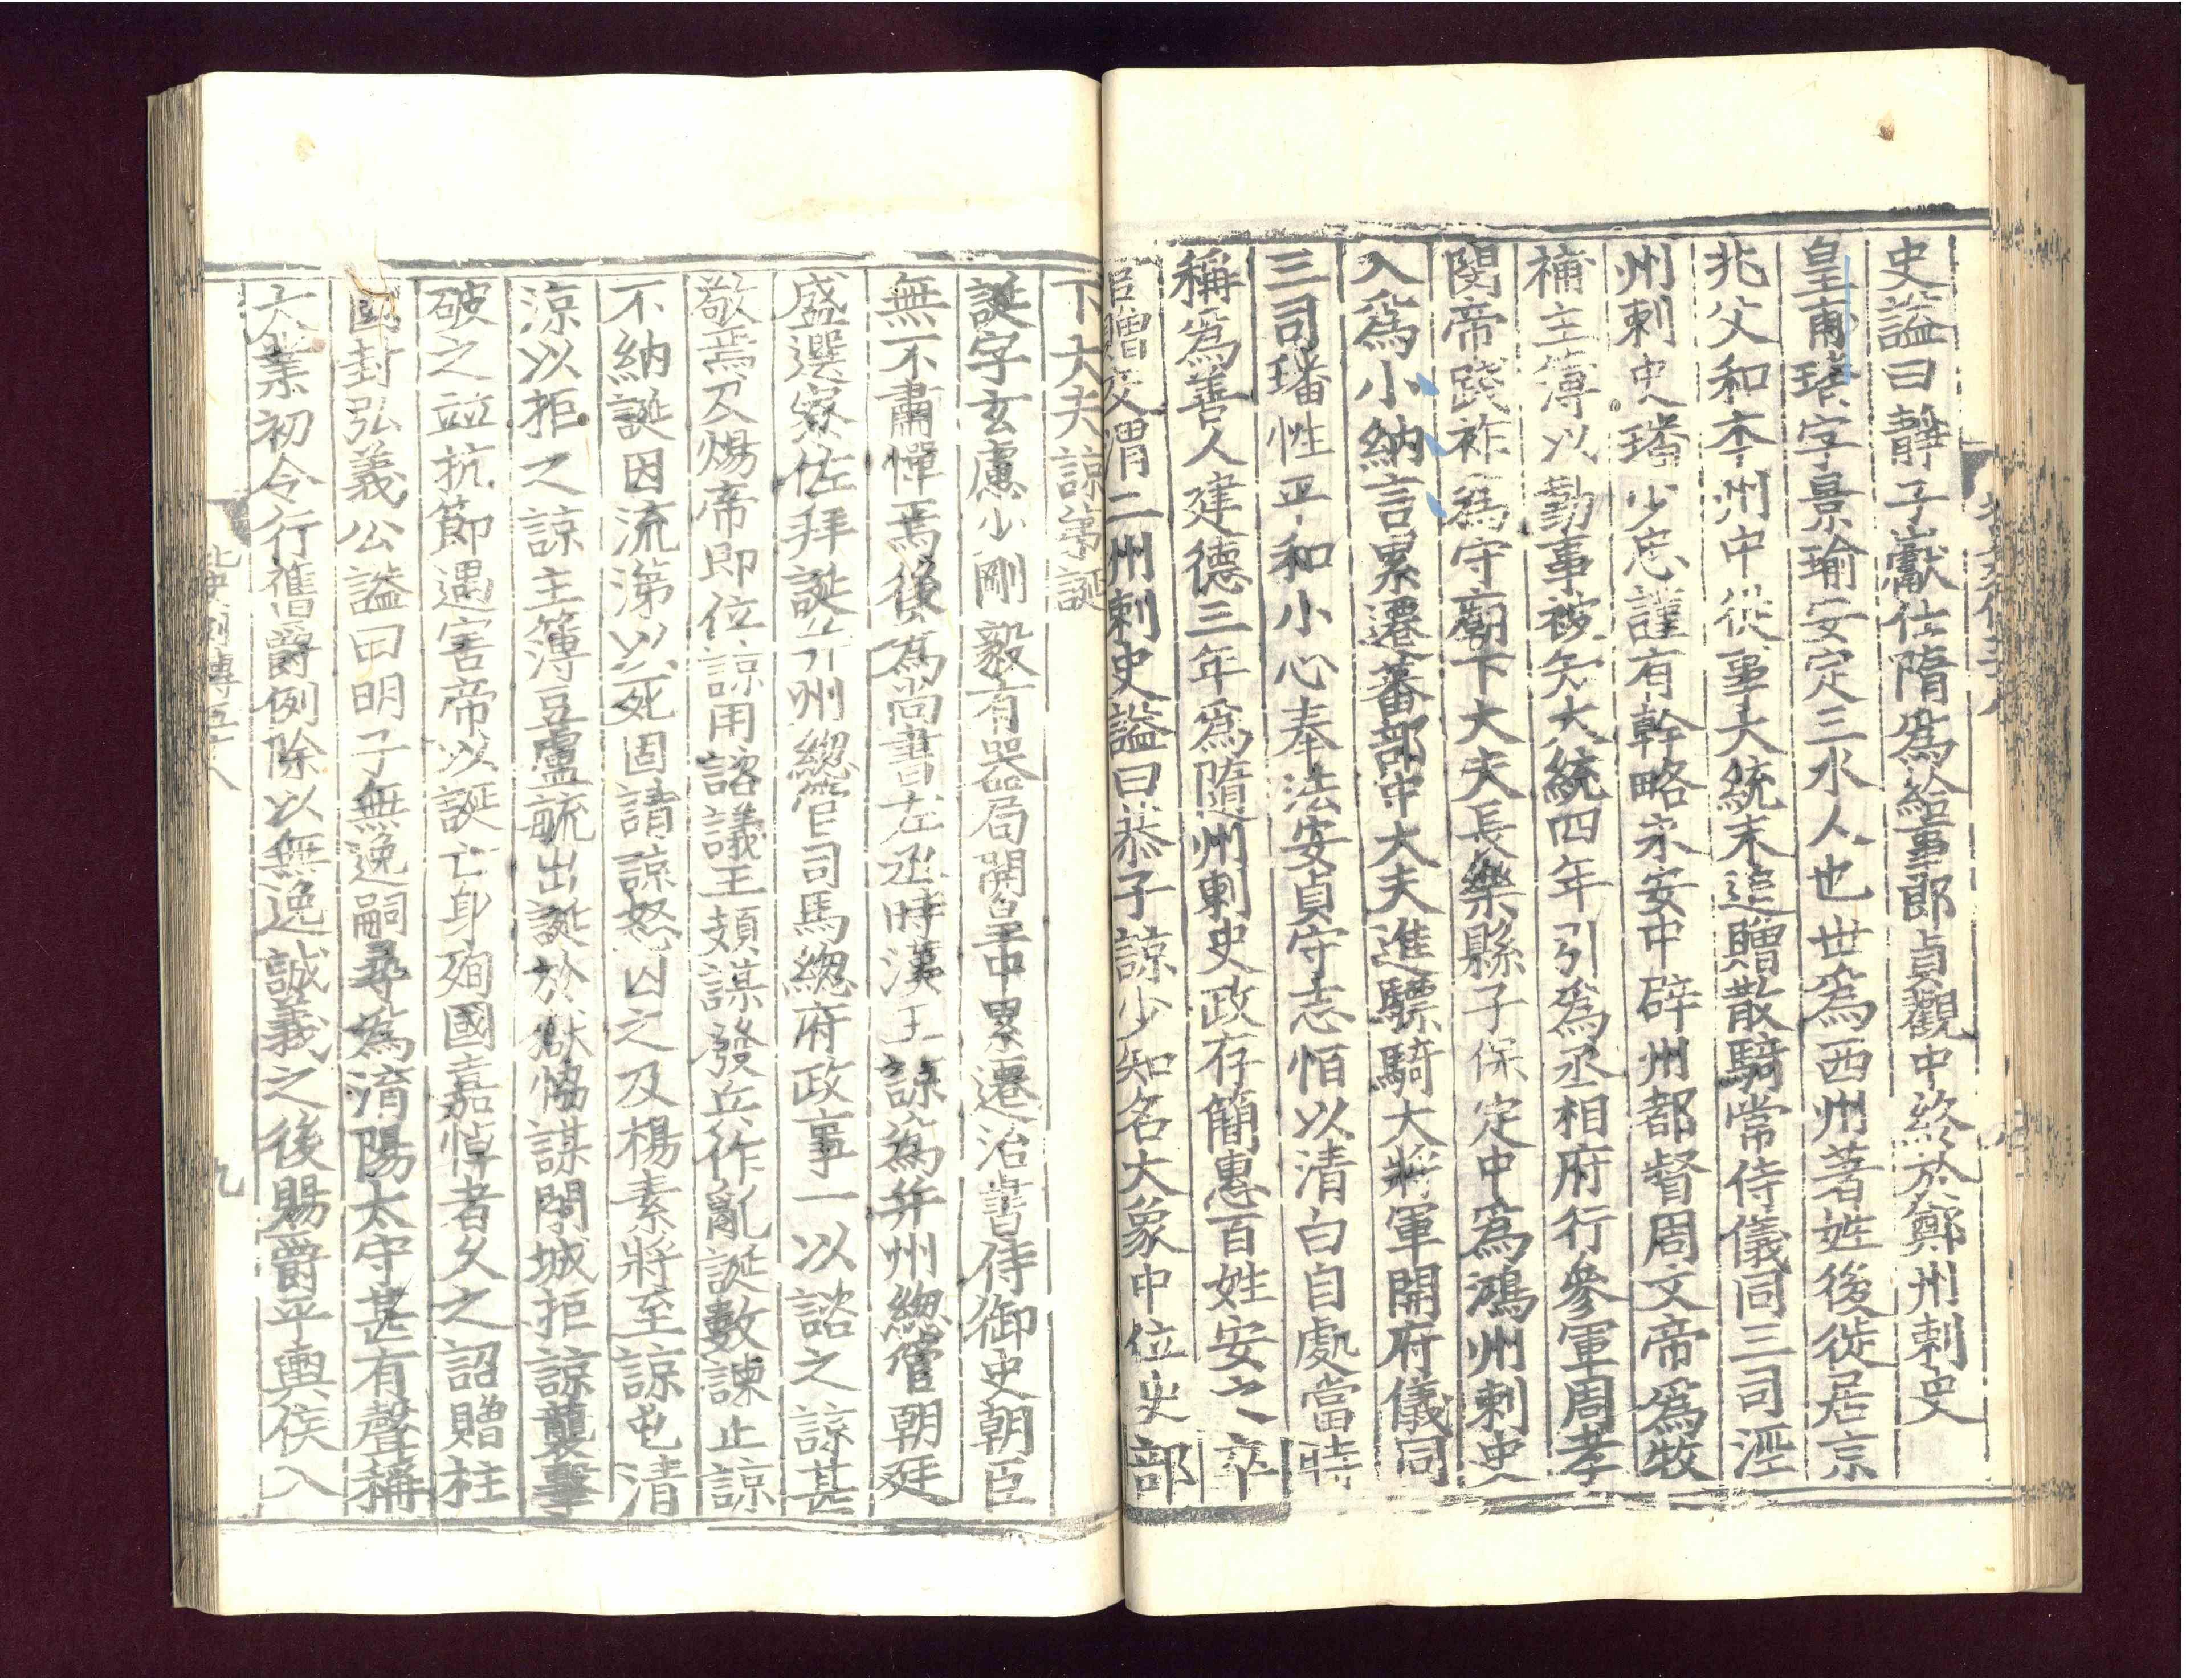 史謚曰靜子獻仕隋爲給事郎貞觀中終於鄭州刺史
皇甫璠字景瑜安定三水人也世爲西州著姓後徙居京
兆父和本州中從事大統末追贈散騎常侍儀同三司涇
州刺史璠少忠謹有幹略永安中辟州都督周文帝爲牧
補主簿以勤事被知大統四年引爲丞相府行參軍周孝
閔帝踐祚爲守廟下大夫長樂縣子保定中爲鴻州刺史
入爲小納言累遷蕃部中大夫進驃騎大將軍開府儀同
三司璠性平和小心奉法安貞守志恒以清白自處當時
稱爲善人建德三年爲隨州刺史政存簡惠百姓安之卒
官贈交渭二州刺史謚曰恭子諒少知名大象中位吏部
下大夫諒弟誕
誕字玄慮少剛毅有器局開皇中累遷治書侍御史朝臣
無不肅憚焉後爲尚書左丞時漢王諒爲并州緫管朝廷
盛選寮佐拜誕并州緫管司馬緫府政事一以諮之諒甚
敬焉及煬帝即位諒用諮議王頍謀發兵作亂誕數諫止諒
不納誕因流涕以死固請諒怒囚之及楊素將至諒屯清
涼以拒之諒主簿豆盧毓出誕於獄恊謀閉城拒諒襲擊
破之並抗節遇害帝以誕亡身殉國嘉悼者久之詔贈柱
國封弘義公謚曰明子無逸嗣尋爲淯陽太守甚有聲稱
大業初令行舊爵例除以無逸誠義之後賜爵平輿侯入
北史列傳五十八
九